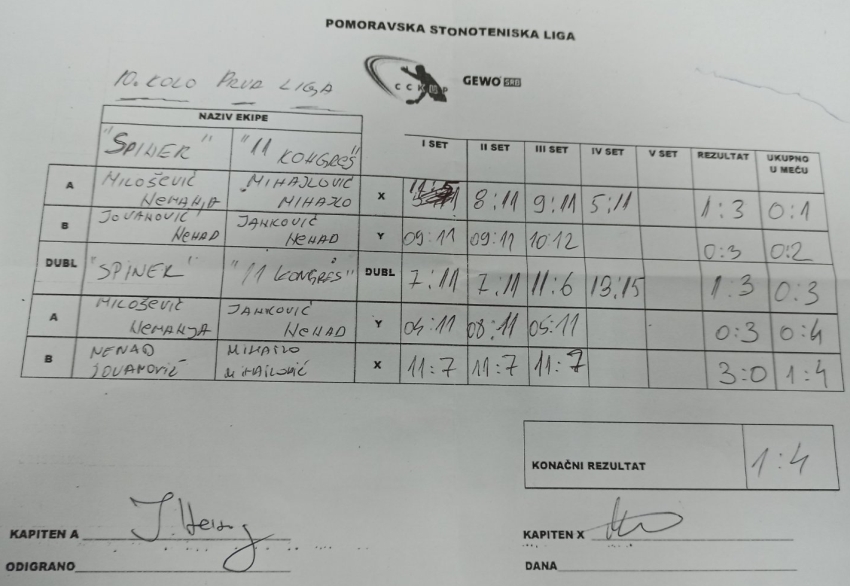 POMORAVSKA STONOTENISKA LIGA
10. KOLO PRVA LIGA
CCKUP GEWO SRB
NAZIV EKIPE
"SPINER" "11 KONGRES" I SET II SET III SET IV SET V SET REZULTAT UKUPNO U MEČU
A MILOŠEVIĆ NEMANJA MIHAJLOVIĆ MIHAJLO X 11:5 8:11 9:11 5:11 1:3 0:1
B JOVANOVIĆ NENAD JANKOVIĆ NENAD Y 09:11 09:11 10:12 0:3 0:2
DUBL "SPINER" "11 KONGRES" DUBL 7:11 7:11 11:6 13:15 1:3 0:3
A MILOŠEVIĆ NEMANJA JANKOVIĆ NENAD Y 08:11 05:11 0:3 0:4
B NENAD JOVANOVIĆ MIHAILO MIHAILOVIĆ X 11:7 11:7 11:7 3:0 1:4
KONAČNI REZULTAT 1:4
KAPITEN A
KAPITEN X
ODIGRANO
DANA